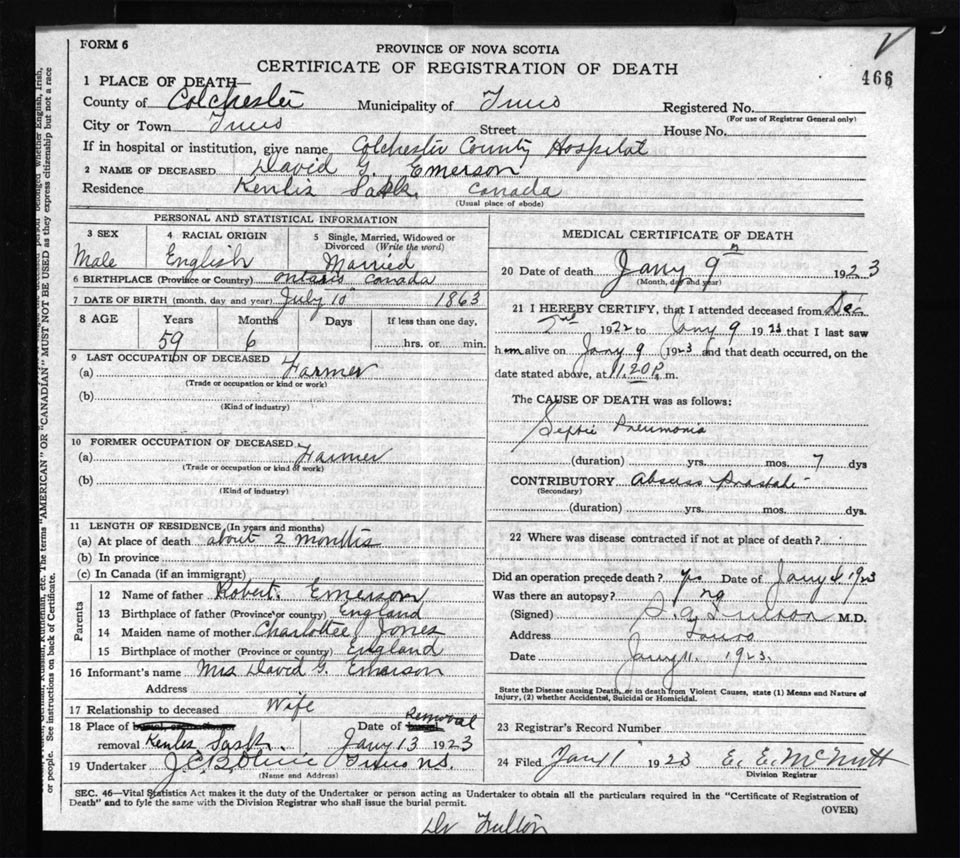 FORM 6
PROVINCE OF NOVA SCOTIA
CERTIFICATE OF REGISTRATION OF DEATH
466
1 PLACE OF DEATH—
County of Colchester Municipality of Truro Registered No.
(For use of Registrar General only)
City or Town Truro Street House No.
If in hospital or institution, give name Colchester County Hospital
2 NAME OF DECEASED David G. Emerson
Residence Kenlis Sask. Canada
(Usual place of abode)
PERSONAL AND STATISTICAL INFORMATION
3 SEX 4 RACIAL ORIGIN 5 Single, Married, Widowed or Divorced (Write the word)
Male English Married
6 BIRTHPLACE (Province or Country) Ontario Canada
7 DATE OF BIRTH (month, day and year) July 10 1863
8 AGE Years Months Days If less than one day,
59 6 hrs. or min.
9 LAST OCCUPATION OF DECEASED
(a) Farmer
(Trade or occupation or kind or work)
(b)
(Kind of industry)
10 FORMER OCCUPATION OF DECEASED
(a) Farmer
(Trade or occupation or kind of work)
(b)
(Kind of industry)
11 LENGTH OF RESIDENCE (In years and months)
(a) At place of death about 2 months
(b) In province
(c) In Canada (if an immigrant)
Parents
12 Name of father Robert Emerson
13 Birthplace of father (Province or country) England
14 Maiden name of mother Charlottee Jones
15 Birthplace of mother (Province or country) England
16 Informant's name Mrs David G. Emerson
Address
17 Relationship to deceased Wife
18 Place of removal Kenlis Sask. Date of Removal Jany 13 1923
19 Undertaker Truro N.S.
(Name and Address)
MEDICAL CERTIFICATE OF DEATH
20 Date of death Jany 9 1923
(Month, day and year)
21 I HEREBY CERTIFY, that I attended deceased from Dec
1922 to Jany 9 1923 that I last saw
him alive on Jany 9 1923 and that death occurred, on the
date stated above, at 11.20 P. m.
The CAUSE OF DEATH was as follows:
Septic Pneumonia
(duration) yrs. mos. 7 dys
CONTRIBUTORY Abscess
(Secondary)
(duration) yrs. mos. dys.
22 Where was disease contracted if not at place of death?
Did an operation precede death? yes Date of Jany 4 1923
Was there an autopsy? no
(Signed) M.D.
Address Truro
Date Jany 11. 1923.
State the Disease causing Death, or in death from Violent Causes, state (1) Means and Nature of
Injury, (2) whether Accidental, Suicidal or Homicidal.
23 Registrar's Record Number
24 Filed Jany 11 1923 E. E. McNutt
Division Registrar
SEC. 46—Vital Statistics Act makes it the duty of the Undertaker or person acting as Undertaker to obtain all the particulars required in the "Certificate of Registration of
Death" and to fyle the same with the Division Registrar who shall issue the burial permit.
(OVER)
Dr Fulton
or people. See instructions on back of Certificate. The terms "AMERICAN" OR "CANADIAN" MUST NOT BE USED as they express citizenship but not a race